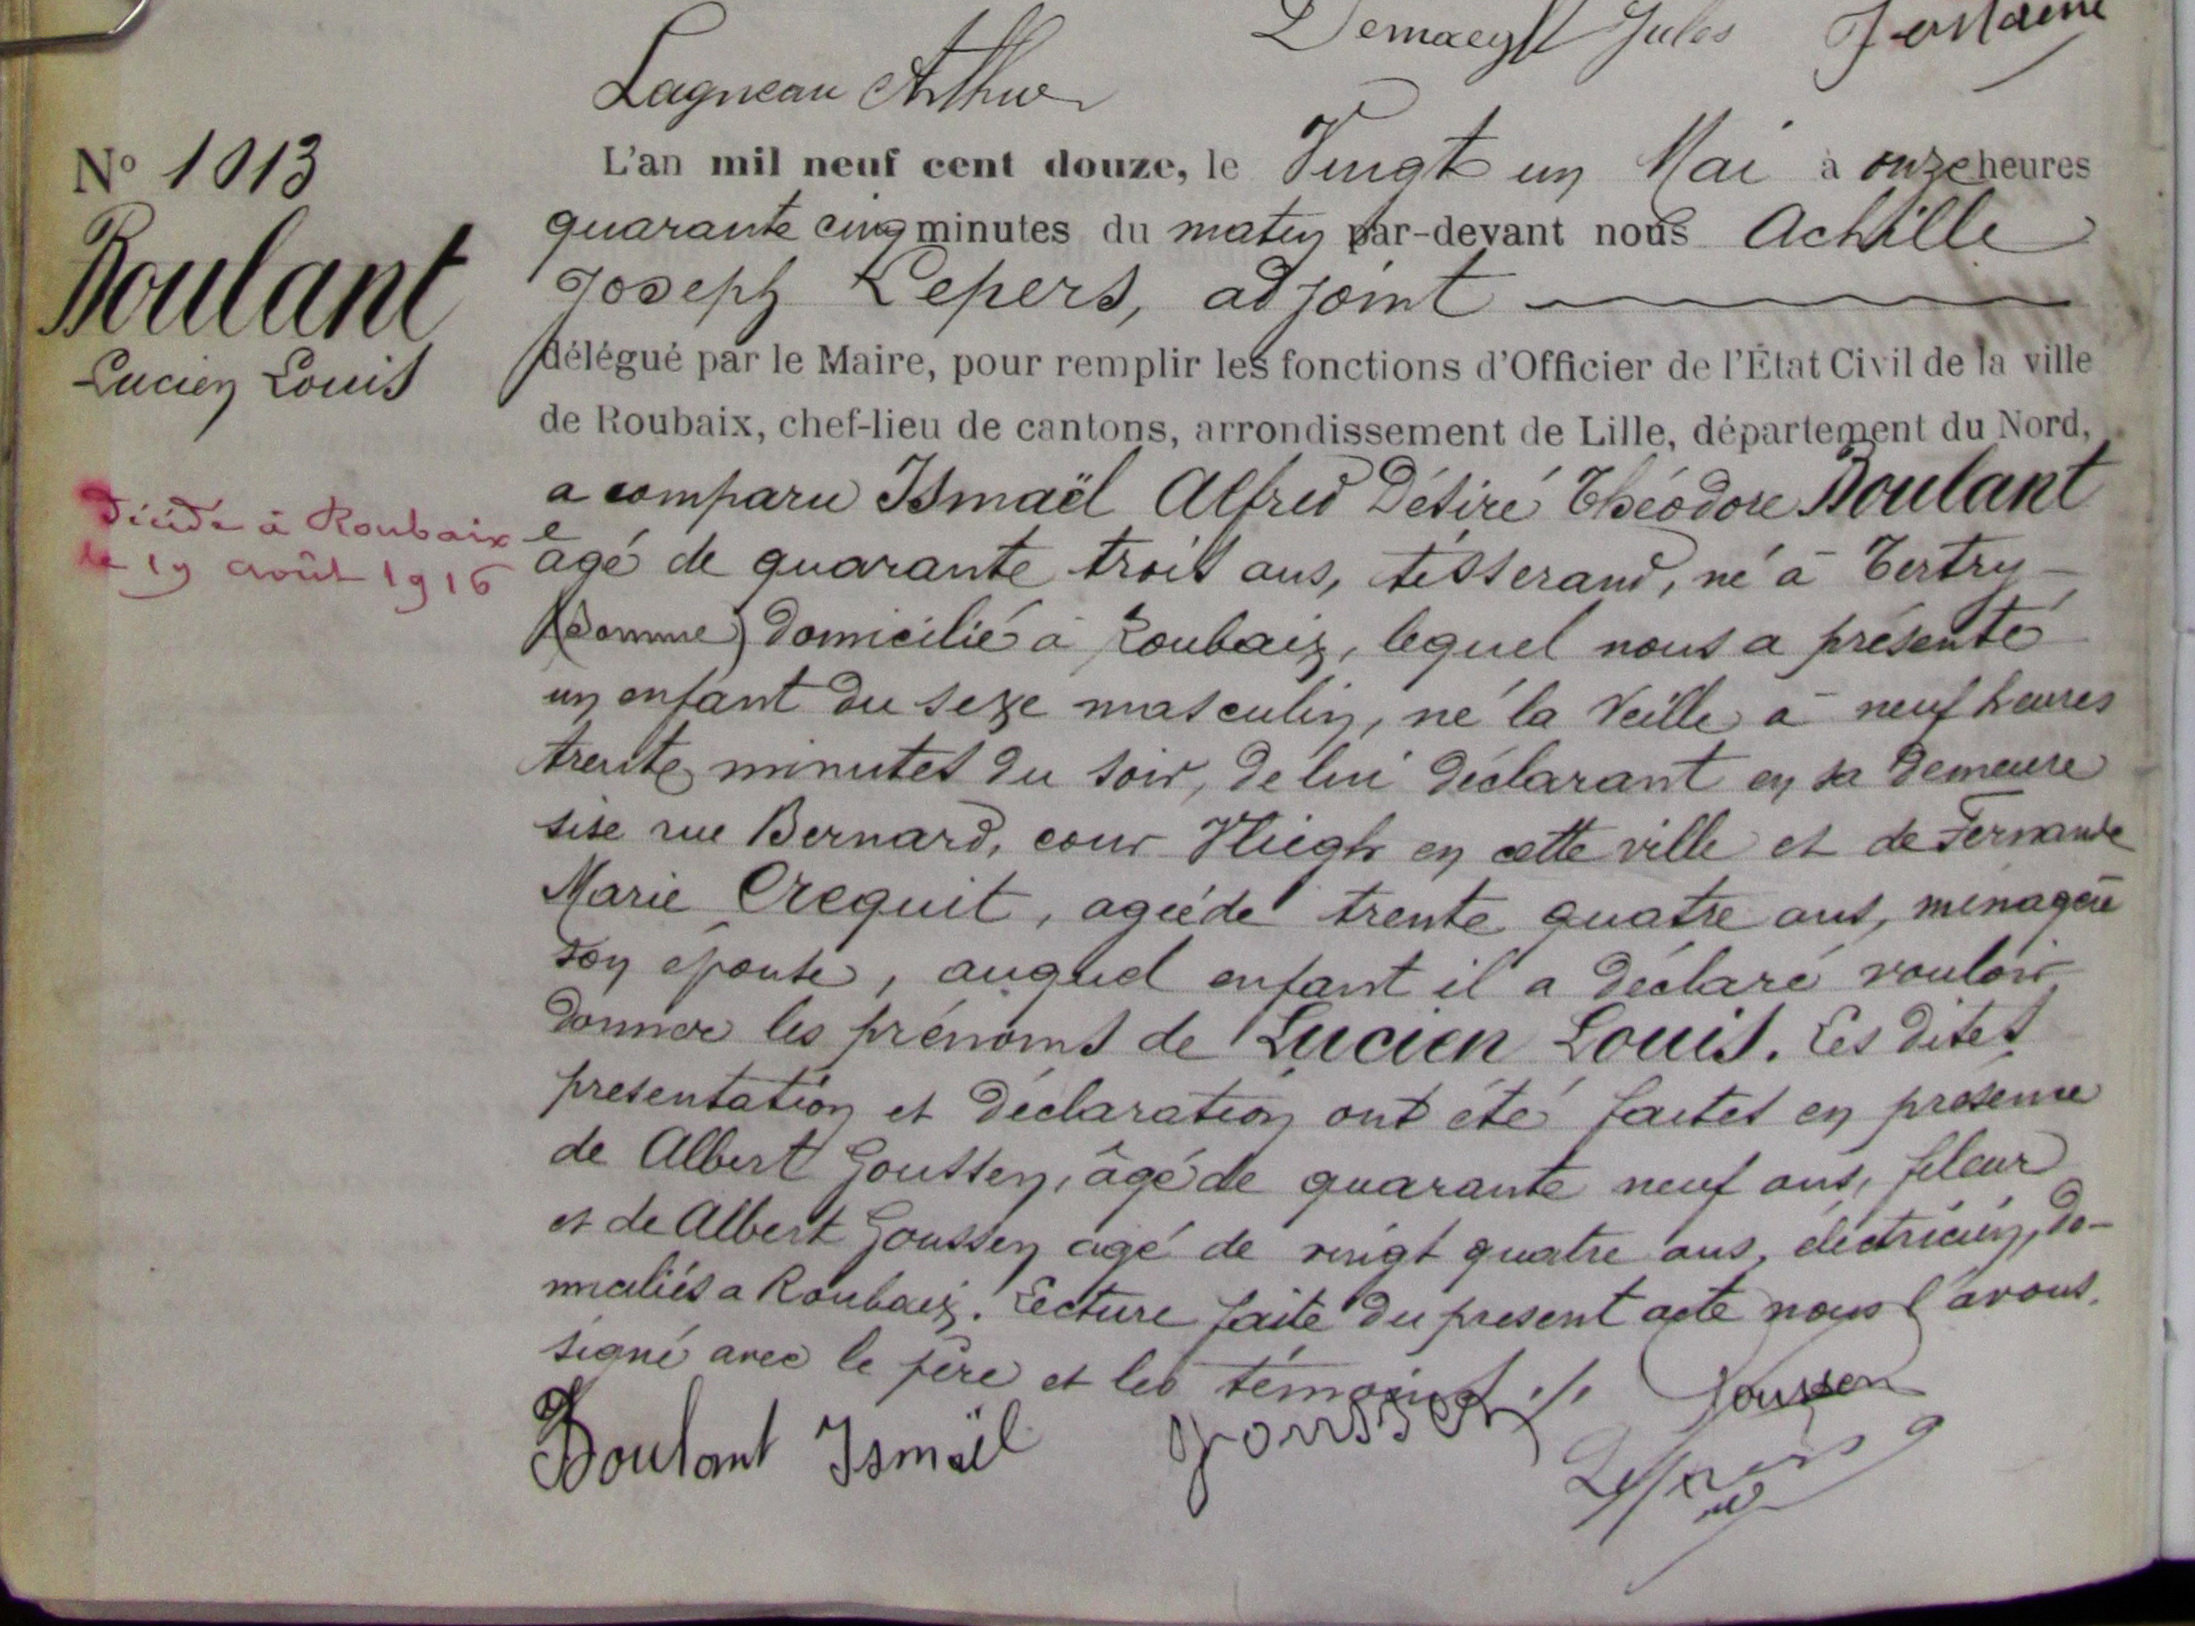 Demaegdt Jules Fontaine
Lagneau Arthur
N° 1013
Boulant
Lucien Louis
décédé à Roubaix
le 19 août 1916
L'an mil neuf cent douze, le Vingt un Mai à onze heures
quarante cinq minutes du matin par-devant nous Achille
Joseph Lepers, adjoint
délégué par le Maire, pour remplir les fonctions d'Officier de l'État Civil de la ville
de Roubaix, chef-lieu de cantons, arrondissement de Lille, département du Nord,
a comparu Ismaël Alfred Désiré Théodore Boulant
âgé de quarante trois ans, tisserand, né à Tertry
(Somme) domicilié à Roubaix, lequel nous a présenté
un enfant du sexe masculin, né la veille à neuf heures
trente minutes du soir, de lui déclarant en sa demeure
sise rue Bernard, cour en cette ville et de Fernande
Marie Crequit, agée de trente quatre ans, ménagère
son épouse, auquel enfant il a déclaré vouloir
donner les prénoms de Lucien Louis. Les dites
présentation et déclaration ont été faites en présence
de Albert Goussen, âgé de quarante neuf ans, fileur
et de Albert Goussen agé de vingt quatre ans, électricien, do-
miciliés a Roubaix. Lecture faite du present acte nous l'avons
signé avec le père et les témoins ./.
Goussen
Boulant Ismaël Goussen
Lepers